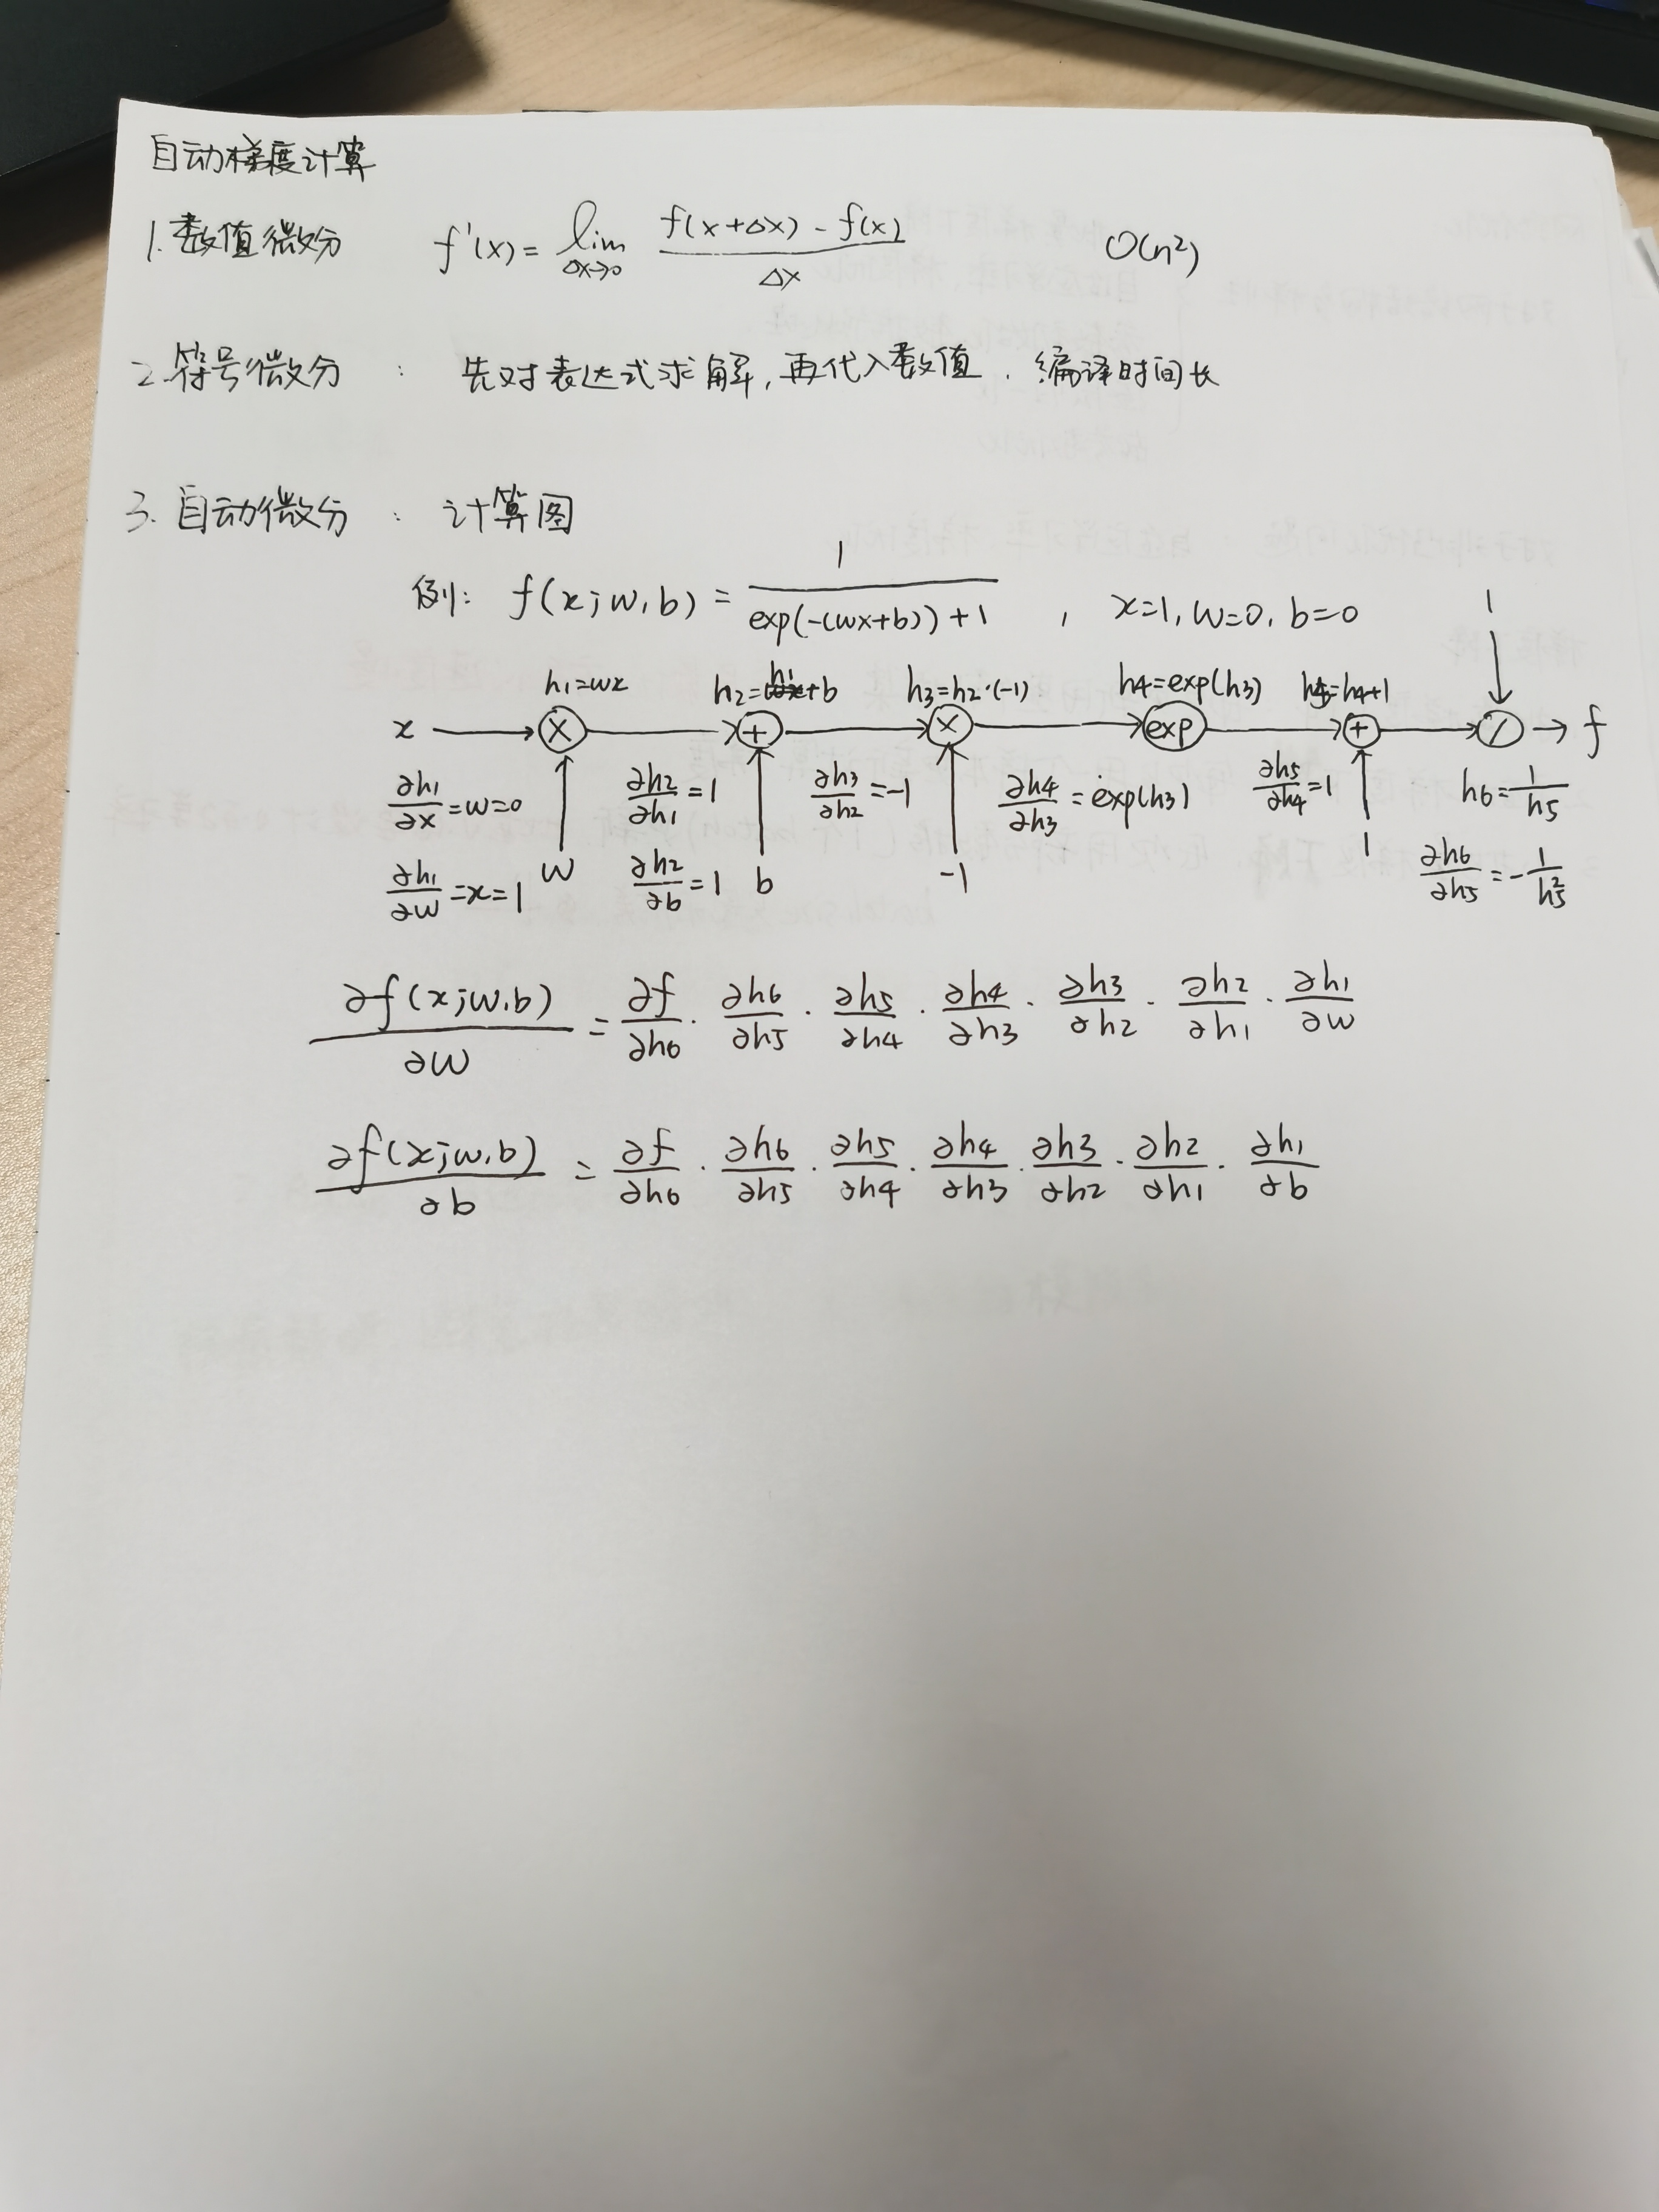 自动梯度计算
1. 数值微分 f'(x) = lim Δx→0 f(x+Δx) - f(x) / Δx O(n²)
2. 符号微分 : 先对表达式求解, 再代入数值. 编译时间长
3. 自动微分 : 计算图
例: f(x;w,b) = 1 / exp(-(wx+b))+1 , x=1, w=0, b=0 1
h1=wx h2=h1+b h3=h2·(-1) h4=exp(h3) h5=h4+1
x → × → + → × → exp → + → / → f
∂h1/∂x = w=0 ∂h2/∂h1 = 1 ∂h3/∂h2 = -1 ∂h4/∂h3 = exp(h3) ∂h5/∂h4 = 1 h6 = 1/h5
∂h1/∂w = x = 1 w ∂h2/∂b = 1 b -1 1 ∂h6/∂h5 = - 1/h5²
∂f(x;w,b)/∂w = ∂f/∂h6 · ∂h6/∂h5 · ∂h5/∂h4 · ∂h4/∂h3 · ∂h3/∂h2 · ∂h2/∂h1 · ∂h1/∂w
∂f(x;w,b)/∂b = ∂f/∂h6 · ∂h6/∂h5 · ∂h5/∂h4 · ∂h4/∂h3 · ∂h3/∂h2 · ∂h2/∂h1 · ∂h1/∂b